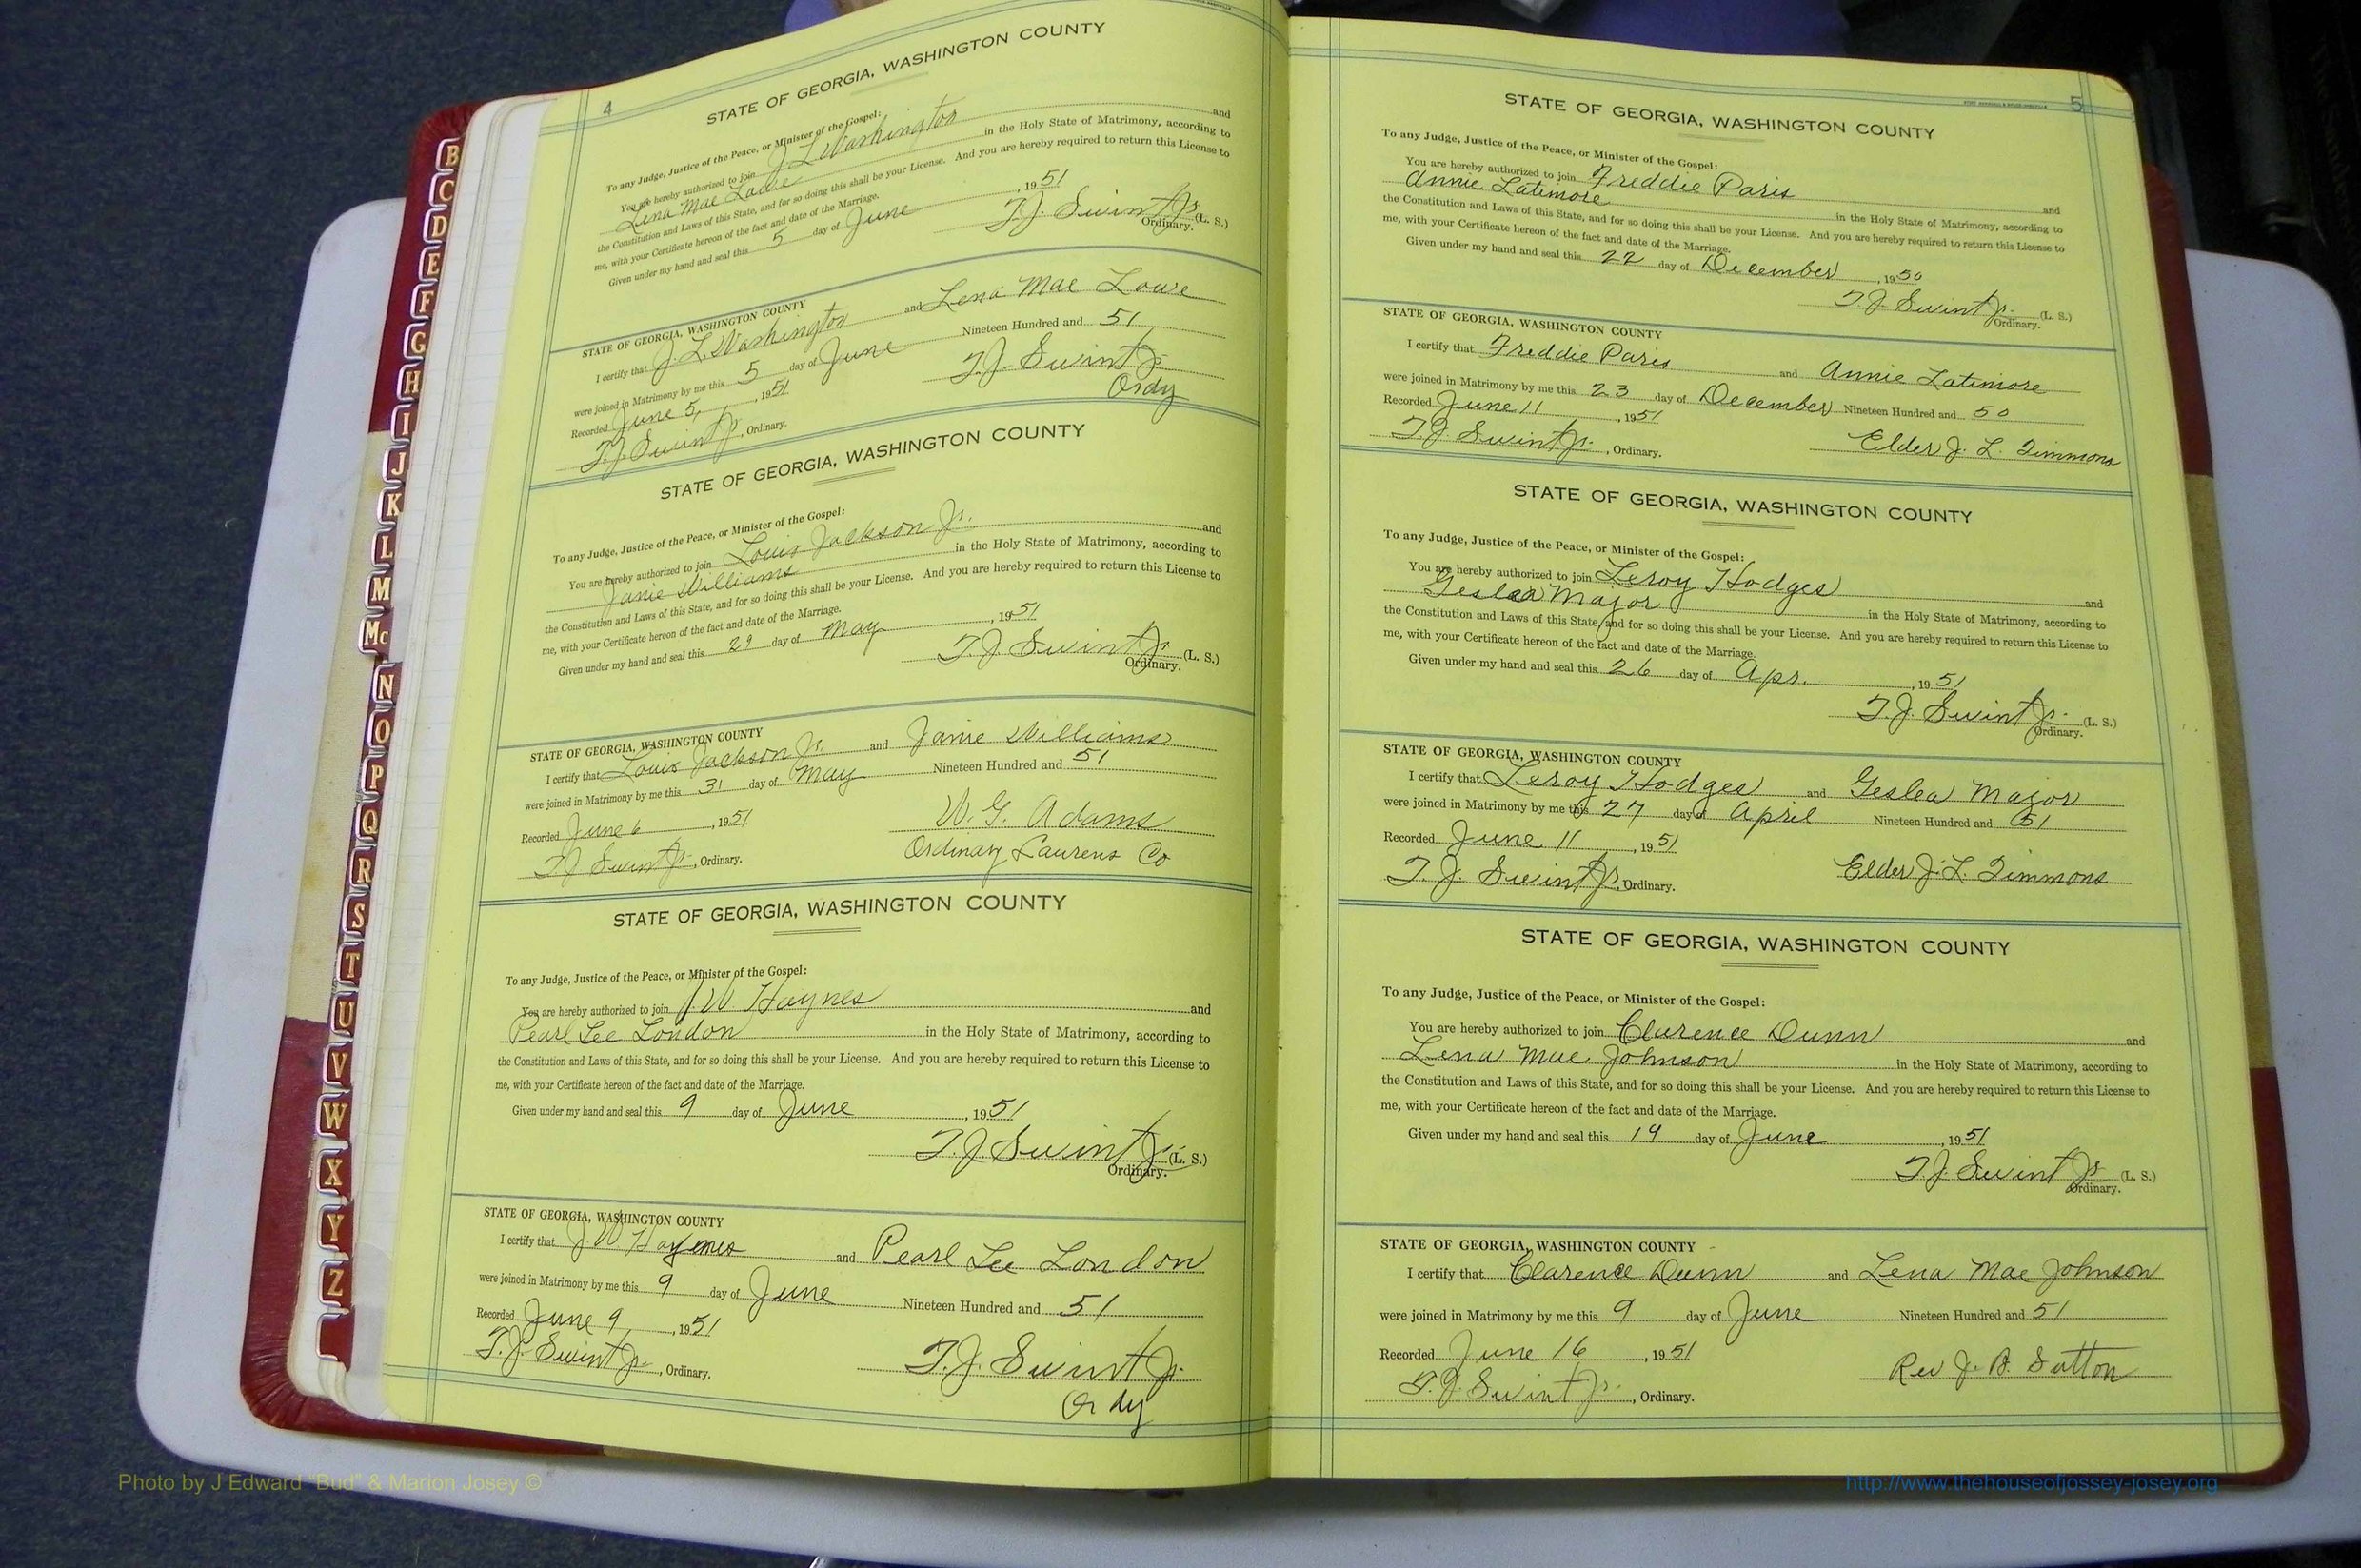 B
C
D
E
F
G
H
I
J
K
L
M
Mc
N
O
P
Q
R
S
T
U
V
W
X
Y
Z
4
STATE OF GEORGIA, WASHINGTON COUNTY
To any Judge, Justice of the Peace, or Minister of the Gospel:
You are hereby authorized to join J. L. Washington and
Lena Mae Lowe in the Holy State of Matrimony, according to
the Constitution and Laws of this State, and for so doing this shall be your License. And you are hereby required to return this License to
me, with your Certificate hereon of the fact and date of the Marriage.
Given under my hand and seal this 5 day of June, 1951
T. J. Swint Jr. (L. S.)
Ordinary.
STATE OF GEORGIA, WASHINGTON COUNTY
I certify that J. L. Washington and Lena Mae Lowe
were joined in Matrimony by me this 5 day of June Nineteen Hundred and 51
Recorded June 5, 1951 T. J. Swint Jr
T. J. Swint Jr, Ordinary. Ordy
STATE OF GEORGIA, WASHINGTON COUNTY
To any Judge, Justice of the Peace, or Minister of the Gospel:
You are hereby authorized to join Louis Jackson Jr. and
Janie Williams in the Holy State of Matrimony, according to
the Constitution and Laws of this State, and for so doing this shall be your License. And you are hereby required to return this License to
me, with your Certificate hereon of the fact and date of the Marriage.
Given under my hand and seal this 29 day of May, 1951
T. J. Swint Jr. (L. S.)
Ordinary.
STATE OF GEORGIA, WASHINGTON COUNTY
I certify that Louis Jackson Jr. and Janie Williams
were joined in Matrimony by me this 31 day of May Nineteen Hundred and 51
Recorded June 6, 1951 W. G. Adams
T. J. Swint Jr., Ordinary. Ordinary Laurens Co
STATE OF GEORGIA, WASHINGTON COUNTY
To any Judge, Justice of the Peace, or Minister of the Gospel:
You are hereby authorized to join J W. Haynes and
Pearl Lee London in the Holy State of Matrimony, according to
the Constitution and Laws of this State, and for so doing this shall be your License. And you are hereby required to return this License to
me, with your Certificate hereon of the fact and date of the Marriage.
Given under my hand and seal this 9 day of June, 1951
T. J. Swint Jr. (L. S.)
Ordinary.
STATE OF GEORGIA, WASHINGTON COUNTY
I certify that J. W Haynes and Pearl Lee London
were joined in Matrimony by me this 9 day of June Nineteen Hundred and 51
Recorded June 9, 1951
T. J. Swint Jr., Ordinary. T. J. Swint Jr.
Ordy
5
STATE OF GEORGIA, WASHINGTON COUNTY
To any Judge, Justice of the Peace, or Minister of the Gospel:
You are hereby authorized to join Freddie Paris and
Annie Latimore in the Holy State of Matrimony, according to
the Constitution and Laws of this State, and for so doing this shall be your License. And you are hereby required to return this License to
me, with your Certificate hereon of the fact and date of the Marriage.
Given under my hand and seal this 22 day of December, 1950
T. J. Swint Jr. (L. S.)
Ordinary.
STATE OF GEORGIA, WASHINGTON COUNTY
I certify that Freddie Paris and Annie Latimore
were joined in Matrimony by me this 23 day of December Nineteen Hundred and 50
Recorded June 11, 1951
T. J. Swint Jr., Ordinary. Elder J. L. Timmons
STATE OF GEORGIA, WASHINGTON COUNTY
To any Judge, Justice of the Peace, or Minister of the Gospel:
You are hereby authorized to join Leroy Hodges and
Geslea Major in the Holy State of Matrimony, according to
the Constitution and Laws of this State, and for so doing this shall be your License. And you are hereby required to return this License to
me, with your Certificate hereon of the fact and date of the Marriage.
Given under my hand and seal this 26 day of Apr., 1951
T. J. Swint Jr. (L. S.)
Ordinary.
STATE OF GEORGIA, WASHINGTON COUNTY
I certify that Leroy Hodges and Geslea Major
were joined in Matrimony by me this 27 day of April Nineteen Hundred and 51
Recorded June 11, 1951
T. J. Swint Jr., Ordinary. Elder J. L. Timmons
STATE OF GEORGIA, WASHINGTON COUNTY
To any Judge, Justice of the Peace, or Minister of the Gospel:
You are hereby authorized to join Clarence Dunn and
Lena Mae Johnson in the Holy State of Matrimony, according to
the Constitution and Laws of this State, and for so doing this shall be your License. And you are hereby required to return this License to
me, with your Certificate hereon of the fact and date of the Marriage.
Given under my hand and seal this 19 day of June, 1951
T. J. Swint Jr (L. S.)
Ordinary.
STATE OF GEORGIA, WASHINGTON COUNTY
I certify that Clarence Dunn and Lena Mae Johnson
were joined in Matrimony by me this 9 day of June Nineteen Hundred and 51
Recorded June 16, 1951 Rev J. B. Sutton
T. J. Swint Jr., Ordinary.
Photo by J Edward "Bud" & Marion Josey ©
http://www.thehouseofjossey-josey.org